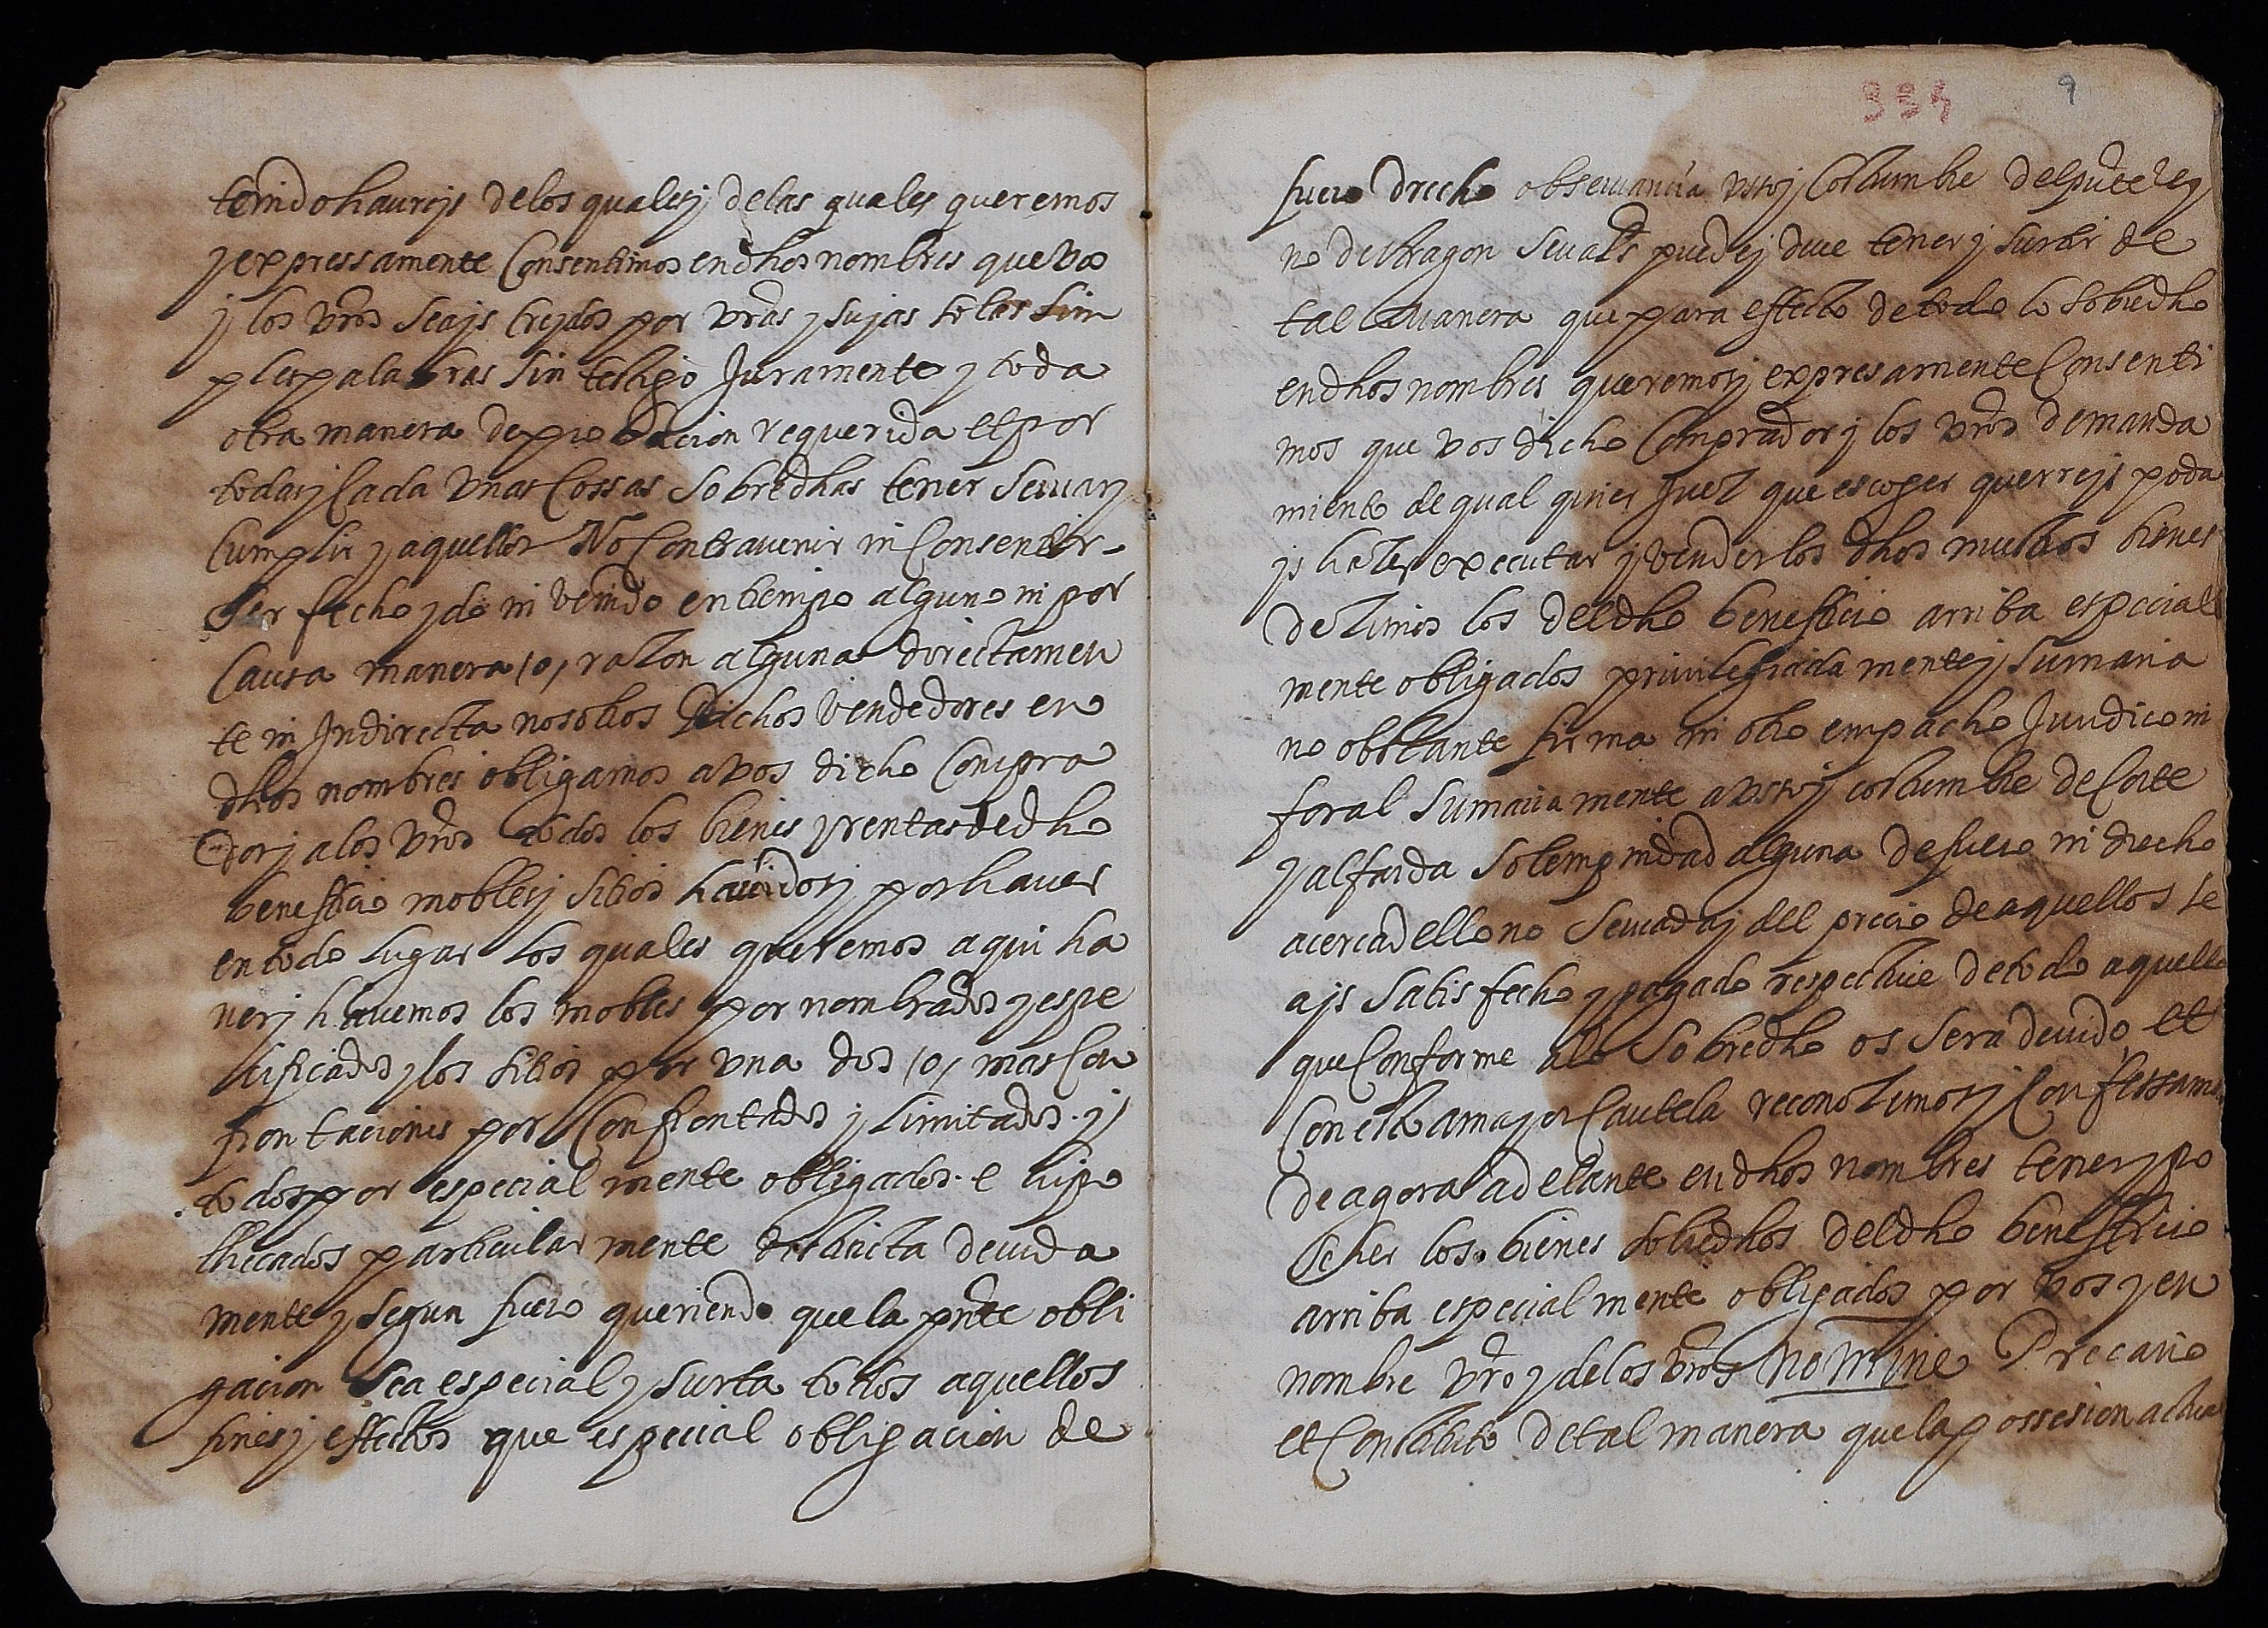 tenido haureys de los quales y de las quales queremos
y expressamente Consentimos en dhos nombres que vos
y los vros seays creydos por vras y suyas soles sim
ples palabras sin testigo Juramento y toda
otra manera de probacion requerida et por
todas y Cada unas Cossas sobredhas tener servar y
Cumplir y aquellas No Contravenir ni Consentir
ser fecho ydo ni venido en tiempo alguno ni por
Causa manera /o/ razon alguna directamen
te ni Indirecta nosotros Dichos vendedores en
dhos nombres obligamos a vos dicho Compra
dor y a los vros todos los bienes y rentas de dho
beneficio mobles y sitios hauidos y por hauer
en todo lugar los quales queremos aqui ha
uer y hauemos los mobles por nombrados y espe
cificados y los sitios por una dos /o/ mas Con
frontaciones por Confrontados y limitados. y
todos por especialmente obligados. e hipo
thecados particularmente distincta deuida
mente y segun fuero queriendo que la pnte obli
gacion sea especial y surta todos aquellos
fines y effectos que especial obligacion de
334 9
fuero drecho obseruancia uso y Costumbre del pnte rey
no de Aragon seu als puede y deue tener y surtir de
tal manera que para effecto de todo lo sobredho
en dhos nombres queremos y expresamente Consenti
mos que vos dicho Comprador y los vros demanda
miento de qual quier Juez que escoger querreys poda
ys hazer executar y vender los dhos muebles bienes
dezimos los del dho beneficio arriba especial
mente obligados priuilegiadamente y sumaria
no obstante firma ni otro empacho Juridico ni
foral sumariamente a uso y costumbre de Corte
y alfarda solempnidad alguna de fuero ni drecho
acerca dello no seruada y del precio de aquellos se
ays satisfecho y pagado respectiue de todo aquello
que Conforme a lo sobredho os sera deuido et
Con esto a mayor Cautela reconozemos y Confessamos
de agora adelante en dhos nombres tener y po
seher los bienes sobredhos del dho beneficio
arriba especialmente obligados por vos y en
nombre vro y de los vros Nomine Precario
et Constituto de tal manera que la possesion actua